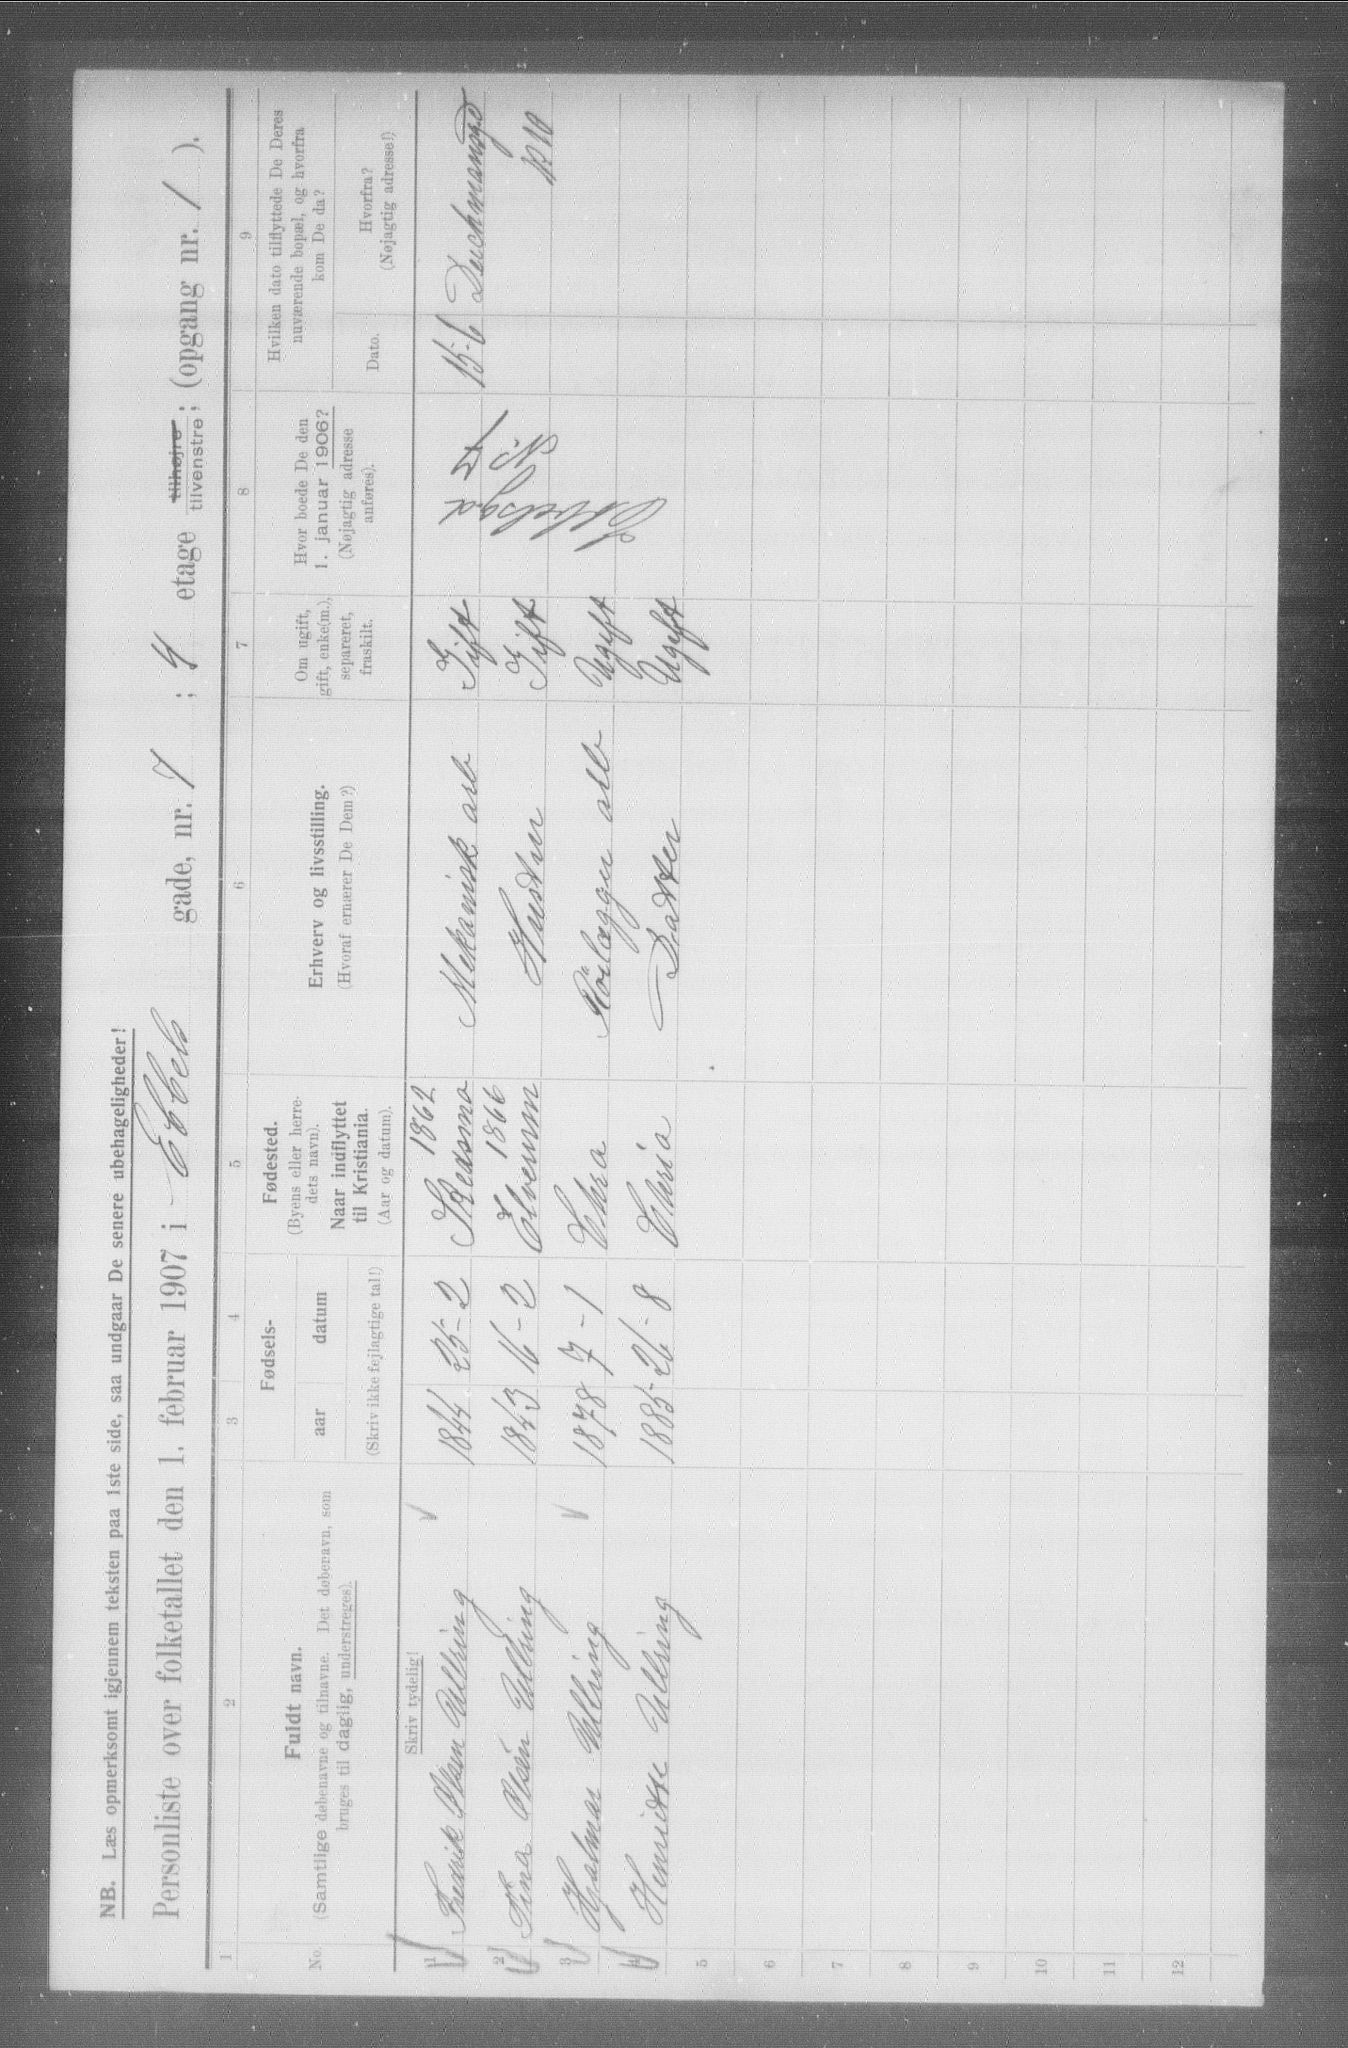 NB. Læs opmerksomt igjennem teksten paa 1ste side, saa undgaar De senere ubehageligheder!
Personliste over folketallet den 1. februar 1907 i Ebbels gade, nr. 7 ; 4 etage tilhøjre tilvenstre; (opgang nr. 1 ).
1 2 3 4 5 6 7 8 9
No.
Fuldt navn.
(Samtlige døbenavne og tilnavne. Det døbenavn, som
bruges til daglig, understreges).
Fødsels-
aar datum
(Skriv ikke fejlagtige tal!)
Fødested.
(Byens eller herre-
dets navn).
Naar indflyttet
til Kristiania.
(Aar og datum).
Erhverv og livsstilling.
(Hvoraf ernærer De Dem?)
Om ugift,
gift, enke(m.),
separeret,
fraskilt.
Hvor boede De den
1. januar 1906?
(Nøjagtig adresse
anføres).
Hvilken dato tilflyttede De Deres
nuværende bopæl, og hvorfra
kom De da?
Dato.
Hvorfra?
(Nøjagtig adresse!)
Skriv tydelig!
1 Fredrik Olsen Ullring 1844 25-2 1862 Mekanisk arb Gift 15-6
2 Tina Olsen Ullring 1843 16-2 Elverum 1866 Hustru Gift 10
3 Hjalmar Ullring 1878 7-1 Chra Rörlægger arb Ugift
4 Henriette Ullring 1885 26-8 Chria Datter Ugift
Ebbelsgd
5
6
7
8
9
10
11
12